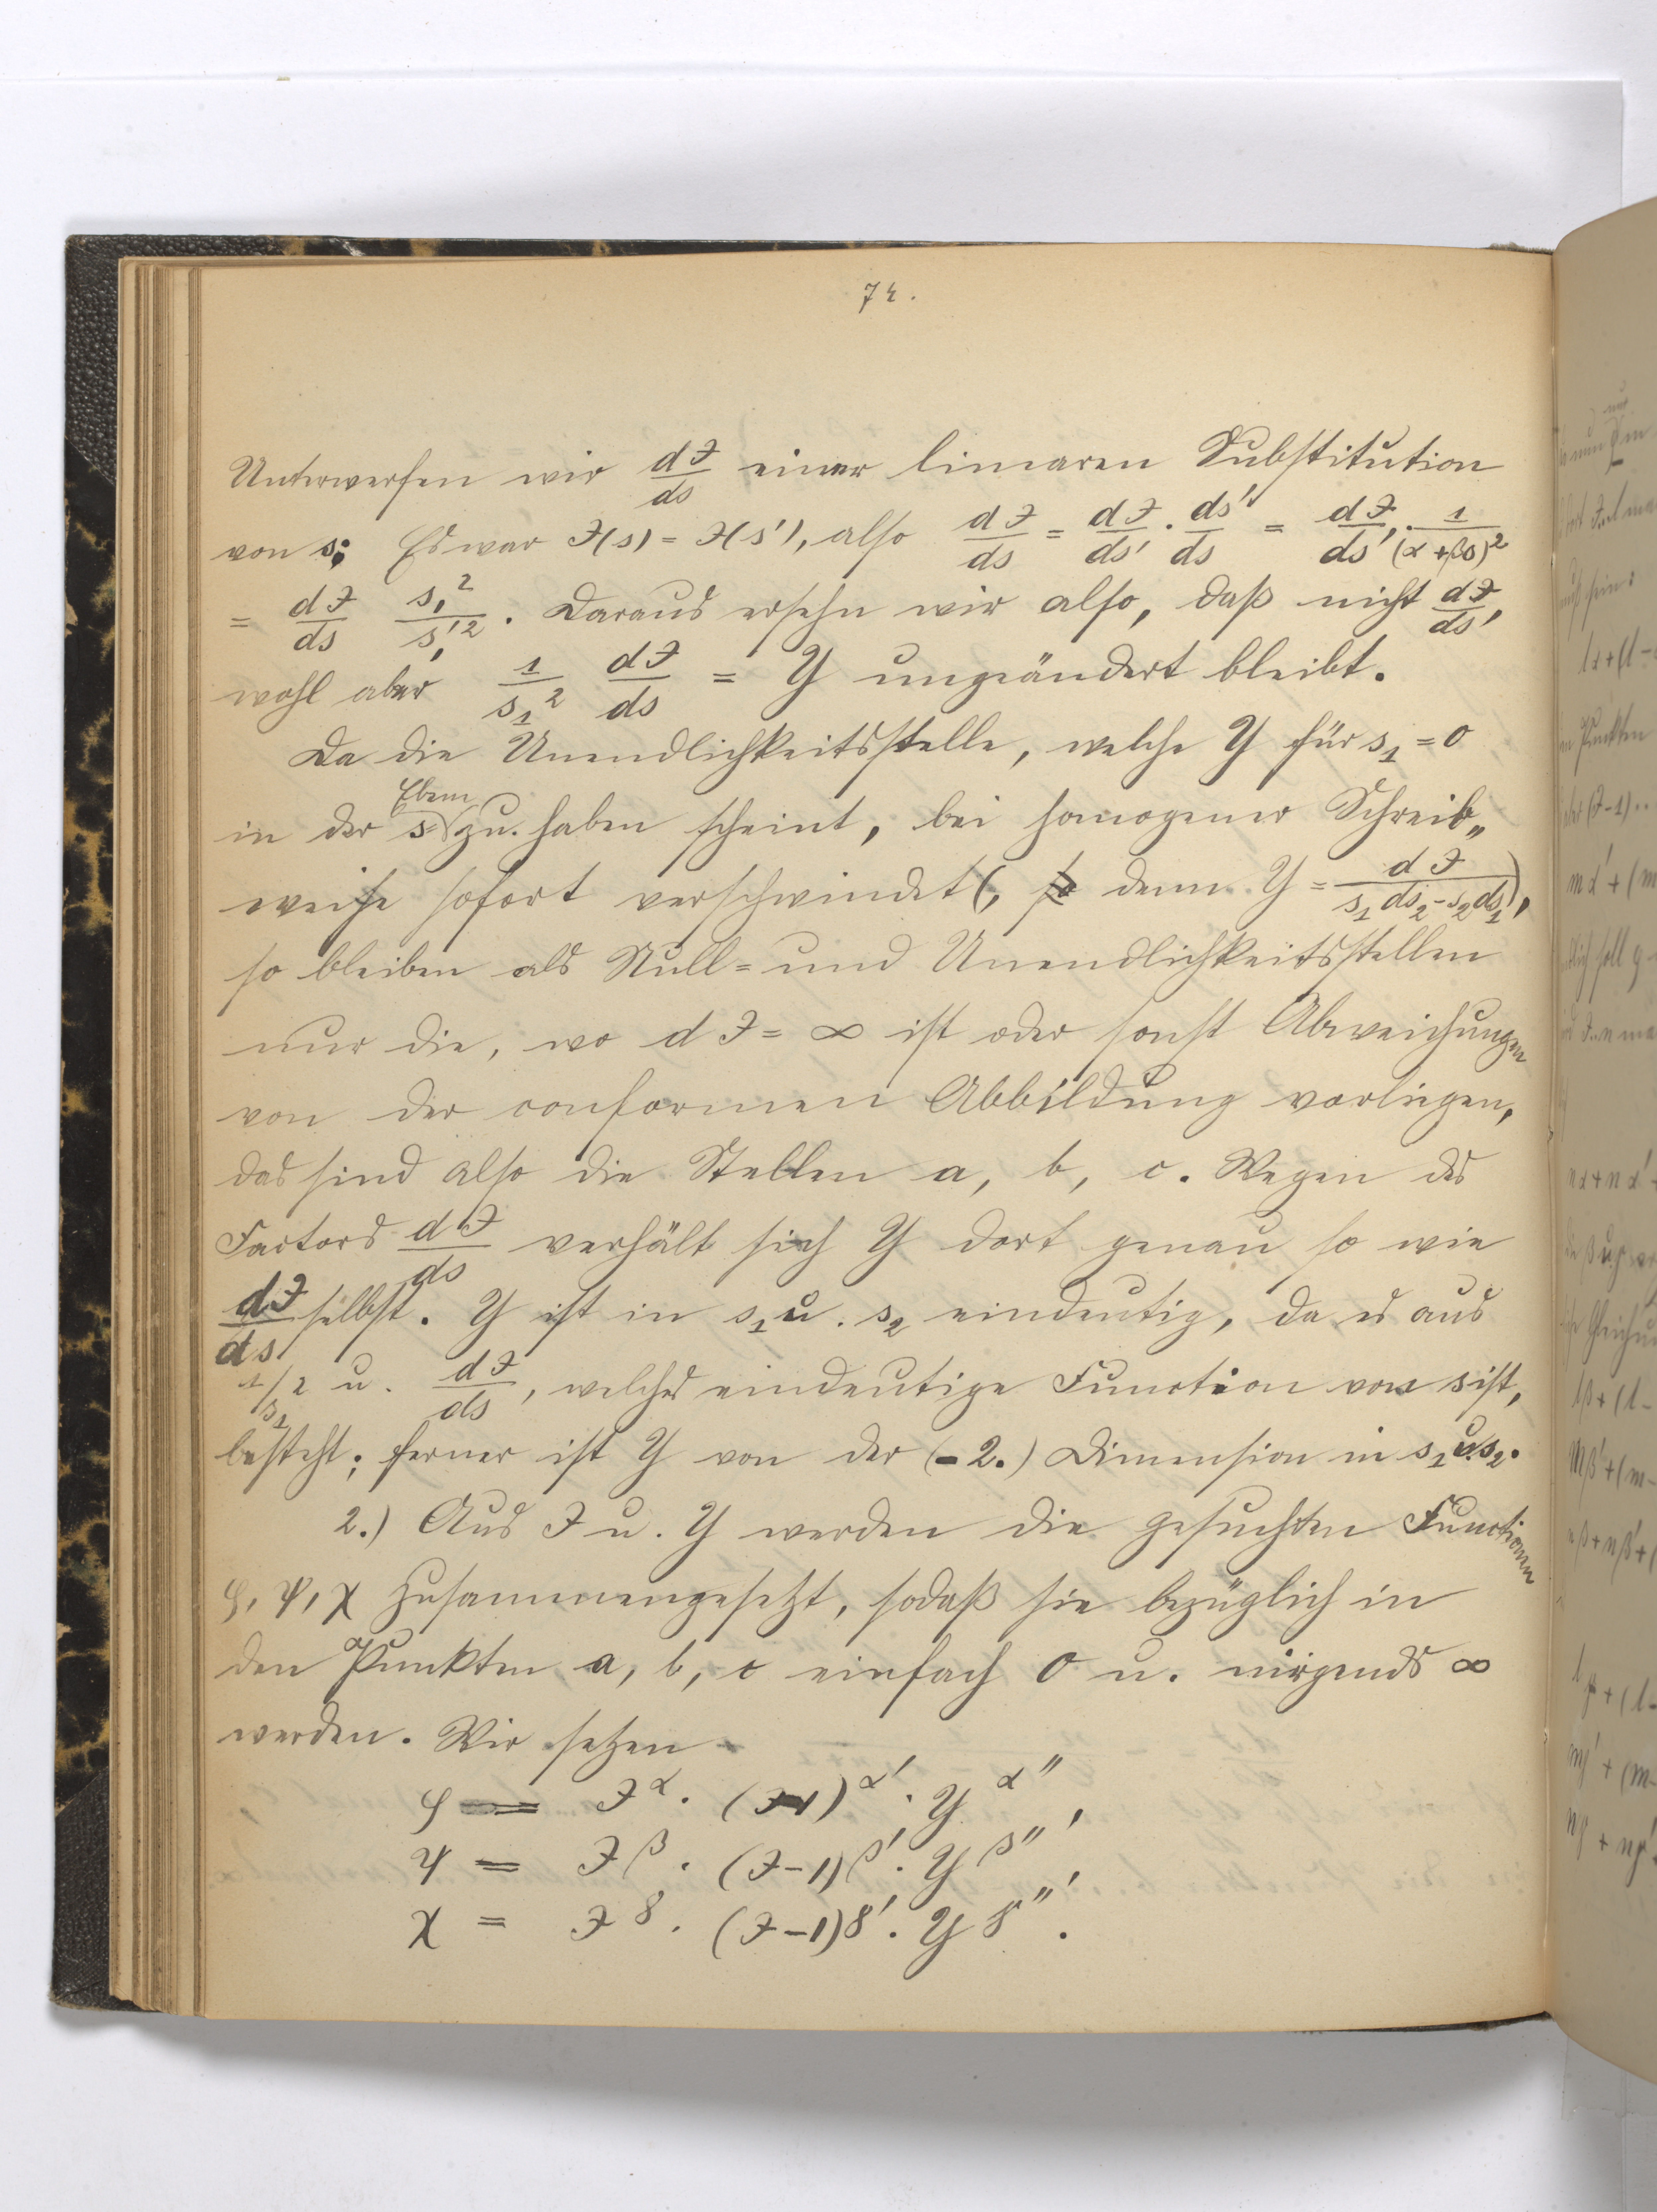 74.
Unterwerfen wir dJ/ds einer linearen Substitution
von s; Es war J(s) = J(s'), also dJ/ds = dJ/ds' · ds'/ds = dJ/ds' · 1/(α+βs)²
= dJ/ds s₁²/s₁'². Daraus ersehn wir also, daß nicht dJ/ds,
wohl aber 1/s₁² dJ/ds = Y ungeändert bleibt.
Da die Unendlichkeitsstelle, welche Y für s₁ = 0
in der s=Ebene zu haben scheint, bei homogener Schreib„
weise sofort verschwindet (, denn Y = dJ/(s₁ds₂-s₂ds₁)),
so bleiben als Null= und Unendlichkeitsstellen
nur die, wo dJ = ∞ ist oder sonst Abweichungen
von der conformen Abbildung vorliegen,
das sind also die Stellen a, b, c. Wegen des
Factors dJ/ds verhält sich Y dort genau so wie
dJ/ds selbst. Y ist in s₁ u. s₂ eindeutig, da es aus
1/s₁² u. dJ/ds, welches eindeutige Function von s ist,
besteht; ferner ist Y von der (-2.) Dimension in s₁ u. s₂.
2.) Aus J u. Y werden die gesuchten Functionen
φ, ψ, χ zusammengesetzt, sodaß sie bezüglich in
den Punkten a, b, c einfach 0 u. nirgends ∞
werden. Wir setzen
φ = J^α · (J-1)^α' · Y^α'',
ψ = J^β · (J-1)^β' · Y^β'',
χ = J^γ · (J-1)^γ' · Y^γ''.